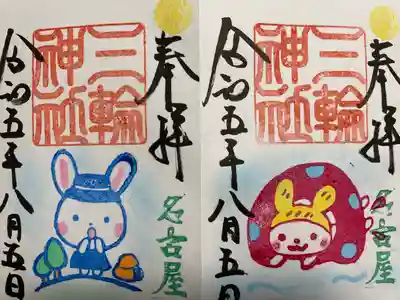 奉拝
三輪
神社
令和五年八月五日
名古屋
奉拝
三輪
神社
令和五年八月五日
名古屋